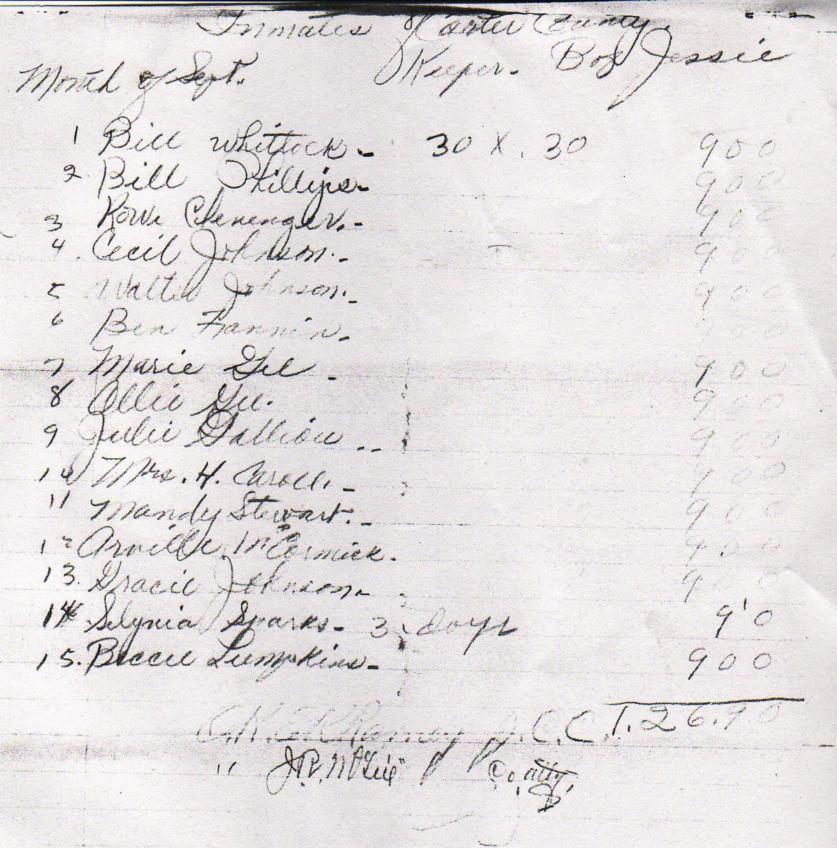 Inmates of Carter County
Month of Sept. Keeper. Boy Jessie
1 Bill Whittock - 30 X .30 900
2 Bill Phillips - 900
3 Rowe Clevenger. - 900
4. Cecil Johnson. - 900
5 Walter Johnson. - 900
6 Ben Fannin. -
7 Marie Gee - 900
8 Ollie Gee. 900
9 Julie Gallion - 900
10 Mrs. H. Caroll. - 900
11 Mandy Stewart. - 900
12 Arville McCormick. 900
13. Gracie Johnson - 900
14 Selynia Sparks - 3 days 90
15. Beccie Lumpkins - 900
Ramey J.C.C. 1.26.90
" Co. atty.